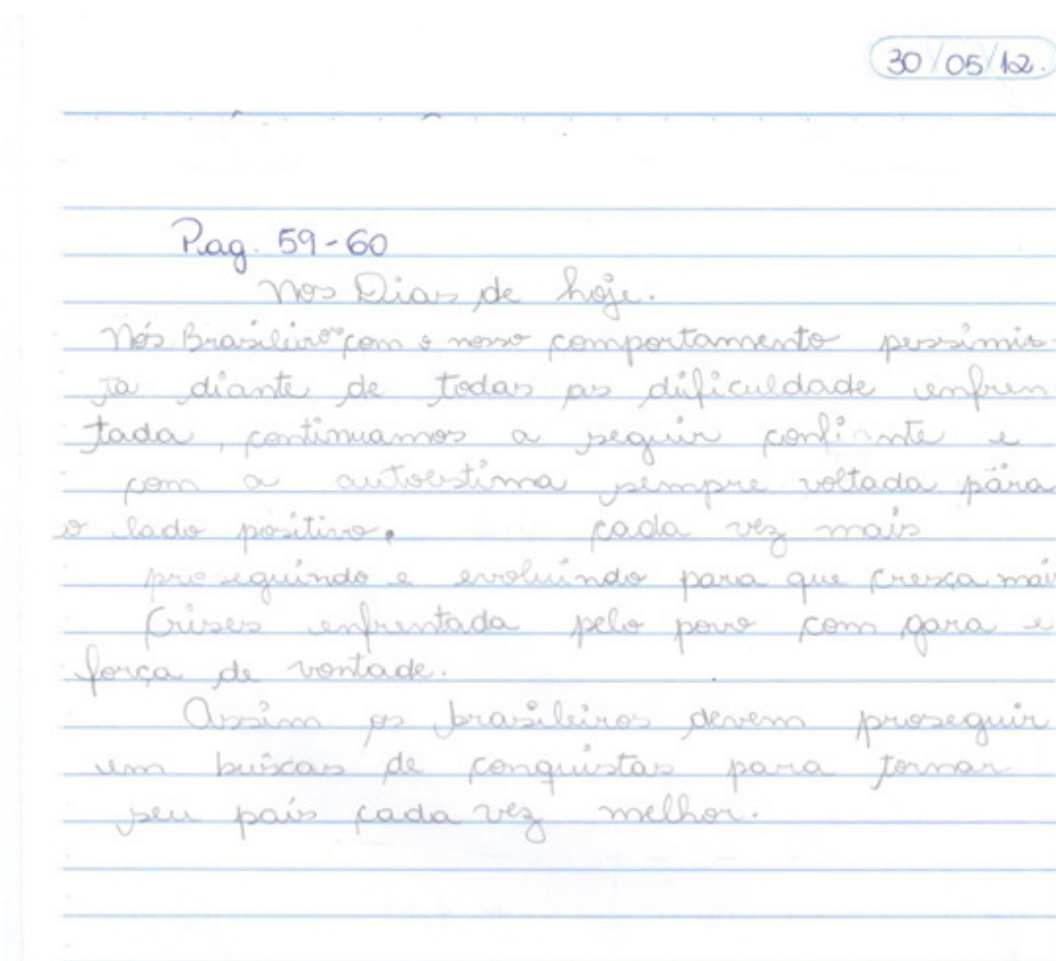 30/05/12.
Pag. 59-60
Nos Dias de hoje.
Nós Brasileiros com o nosso comportamento pessimis-
ta diante de todas as dificuldade enfren
tada, continuamos a seguir confiante e
com a autoestima sempre voltada pára
o lado positivo. cada vez mais
proseguindo e evoluindo para que cresça mais
Crises enfrentada pelo povo com gara e
força de vontade.
Assim os brasileiros devem proseguir
em buscas de conquistas para tornar
seu país cada vez melhor.